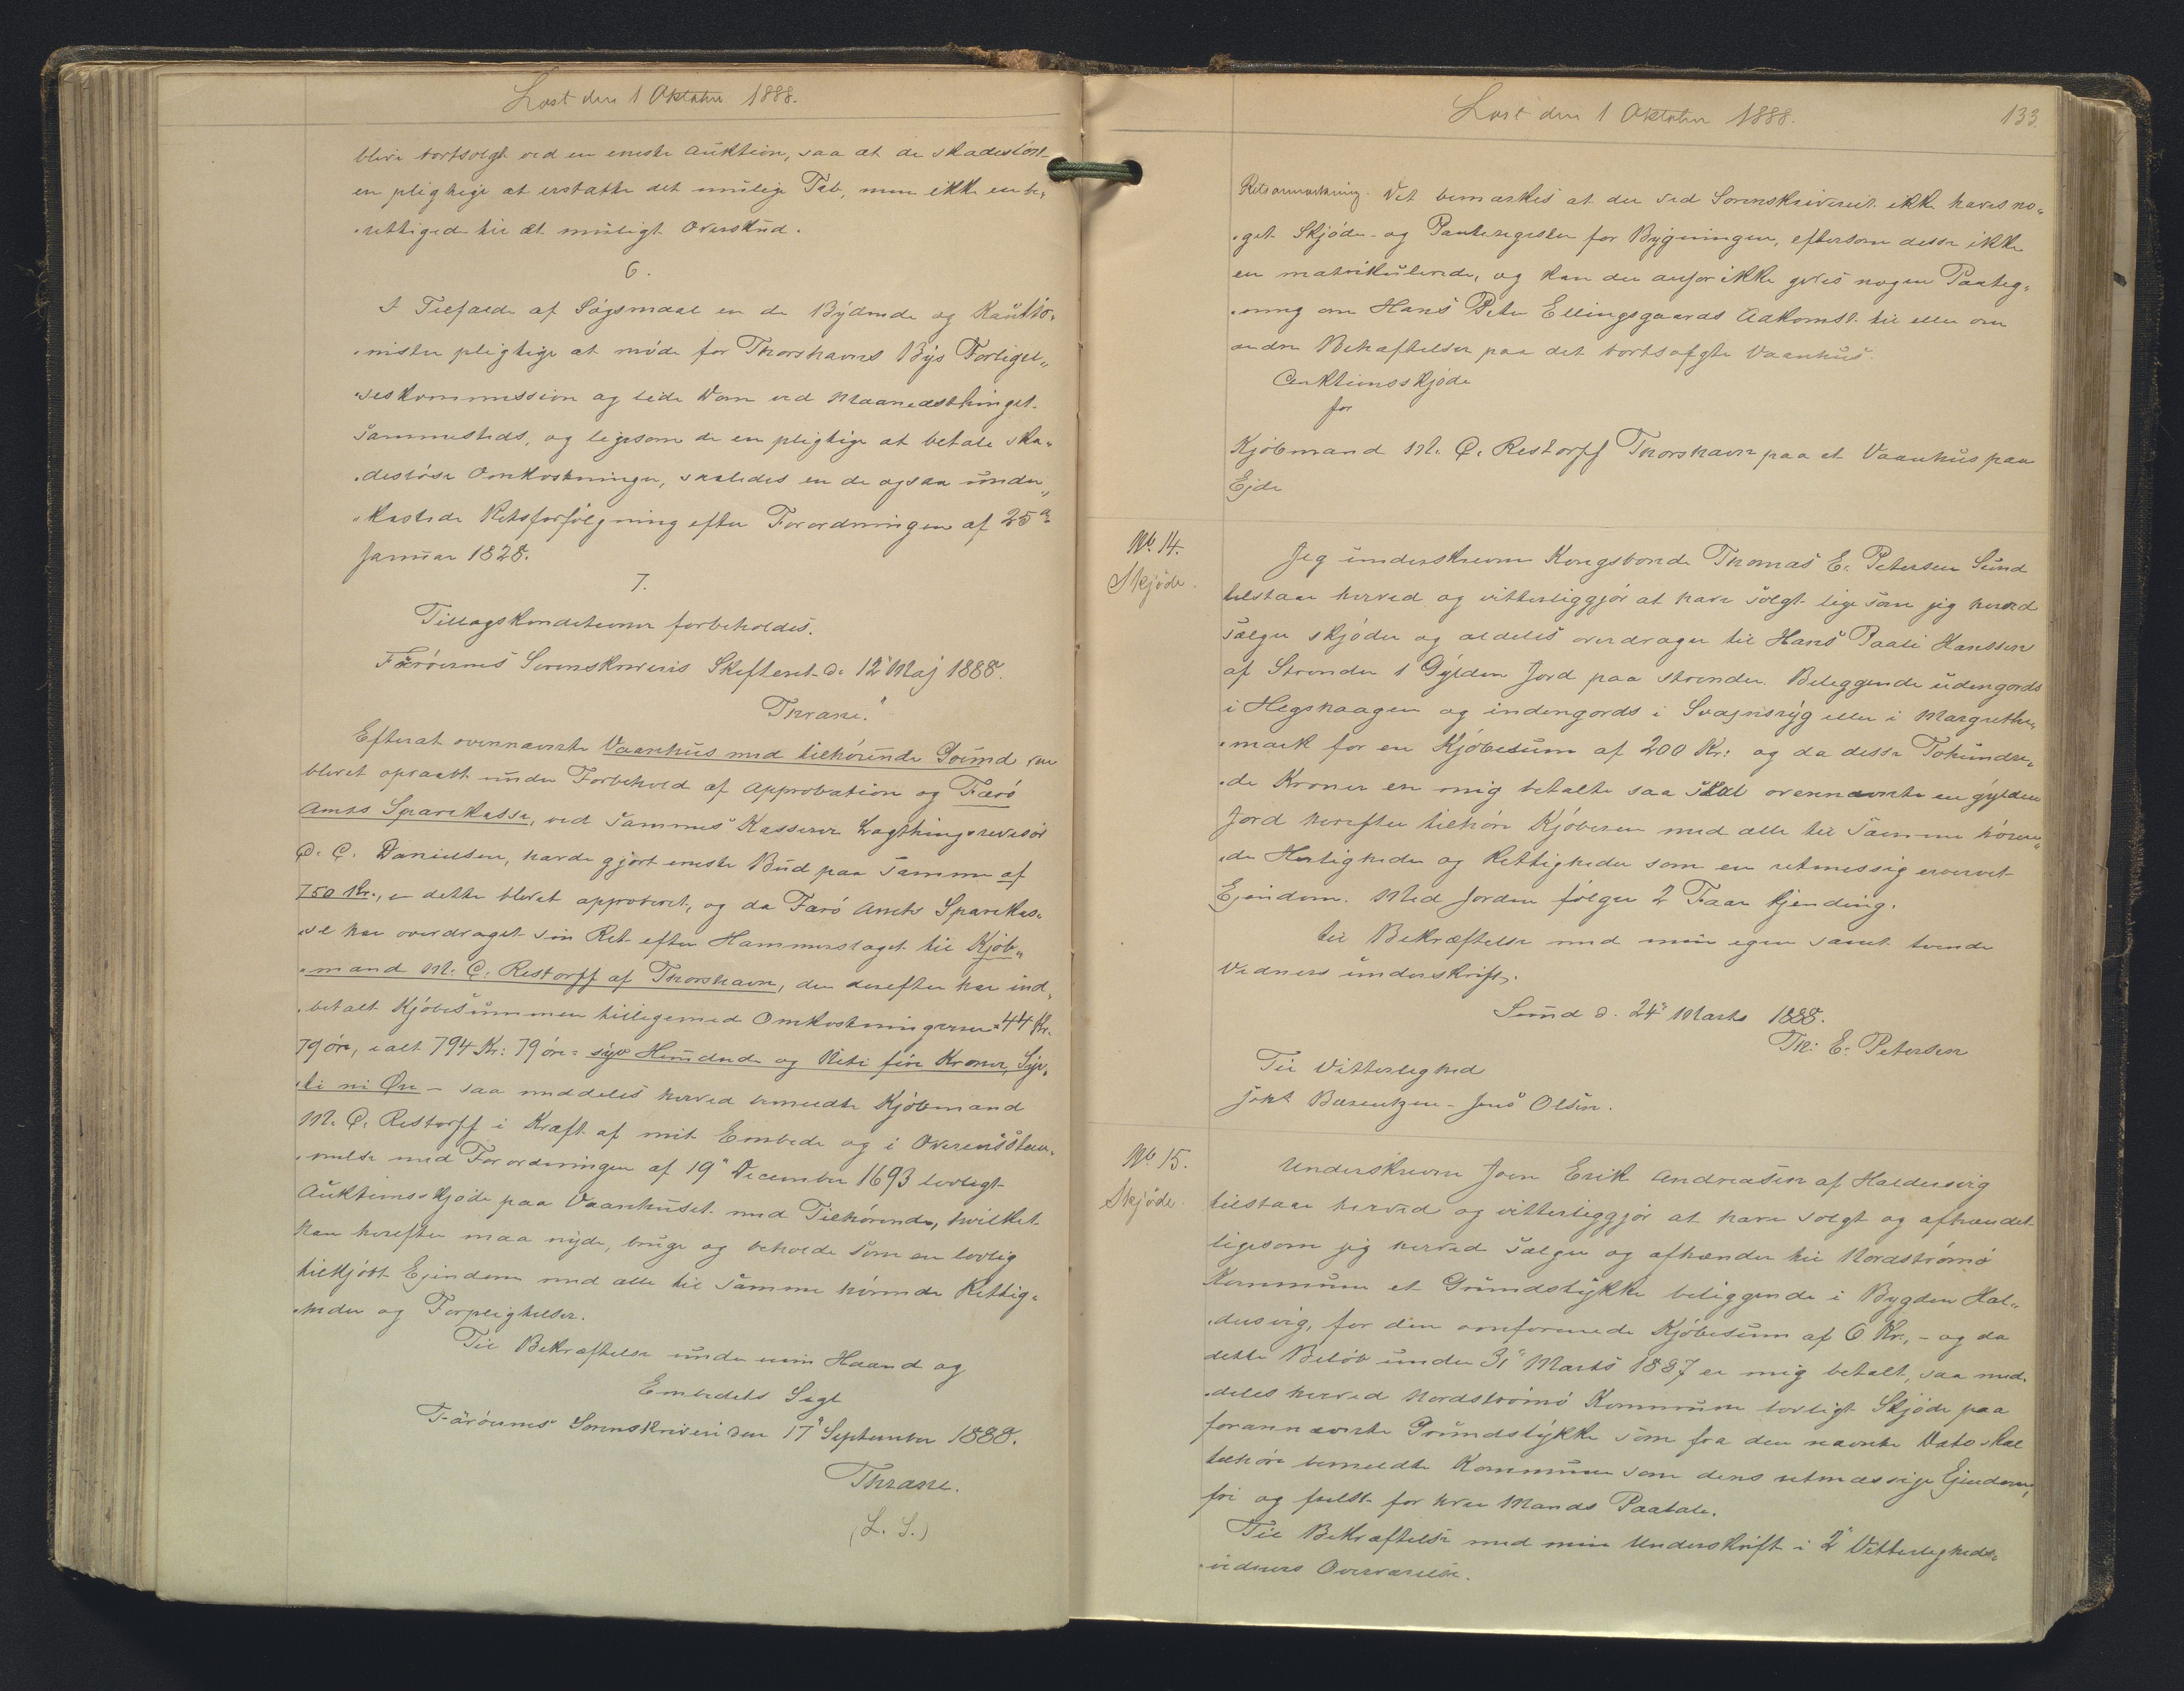 Læst den 1 Oktober 1888.
blive bortsolgt ved en eneste Auktion, saa at de skadeslöst
er pligtige at erstatte det mulige Tab, men ikke er be„
„rettiged til et muligt Overskud.
6.
I Tilfælde af Sögsmaal er de Bydende og Kautio„
„nister pligtige at möde for Thorshavns Bys Forligel„
„seskommission og lide Dom ved Maanedsthinget
sammesteds, og ligesom de er pligtige at betale ska„
„deslöse Omkostninger, saaledes er de ogsaa under„
„kastede Retsforfölgning efter Forordningen af 25de
Januar 1828.
7.
Tillægskonditioner forbeholdes.
Færöernes Sorenskriveris Skifteret d: 12" Maj 1888.
Thrane."
Efterat ovennævnte Vaanhus med tilhörende Grund var
blevet opraabt under Forbehold af Approbation og Færö
Amts Sparekasse, ved sammes Kasserer Lagthingsrevisor
D. C. Danielsen, havde gjort eneste Bud paa samme af
750 Kr., er dette blevet approberet, og da Færö Amts Sparekas„
„se har overdraget sin Ret efter Hammerslaget til Kjöb„
„mand M. C. Restorff af Thorshavn, der derefter har ind„
„betalt Kjöbesummen tilligemed Omkostningerne 44 Kr.
79 öre, ialt 794 Kr: 79 öre = syv Hundrede og Niti fire Kroner, Syv„
„ti ni Öre – saa meddeles herved bemeldte Kjöbmand
M. C. Restorff i Kraft af mit Embede og i Overensstem„
„melse med Forordningen af 19" December 1693 lovligt
Auktionsskjöde paa Vaanhuset med Tilhörende, hvilket
han herefter maa nyde, bruge og beholde som en lovlig
tilkjöbt Ejendom med alle til samme hörende Rettig„
„heder og Forpligtelser.
Til Bekræftelse under min Haand og
Embedets Segl
Færöernes Sorenskriveri den 17" September 1888.
Thrane.
(L. S.)
Læst den 1 Oktober 1888.
133.
Retsanmærkning. Det bemærkes at der ved Sorenskriveriet ikke haves no„
„get Skjöde- og Panteregister for Bygningen, eftersom disse ikke
er matrikulerede, og kan der derfor ikke gives nogen Paateg„
„ning om Hans Peter Ellingsgaards Adkomst til eller om
andre Behæftelser paa det bortsolgte Vaanhus.
Auktionsskjöde
for
Kjöbmand M. C. Restorff Thorshavn paa et Vaanhus paa
Ejde
No 14.
Skjöde.
Jeg underskrevne Kongsbonde Thomas E. Petersen Sund
tilstaar herved og vitterliggjör at have solgt lige som jeg herved
sælger skjöder og aldeles overdrager til Hans Paali Hanssen
af Strender 1 Gylden Jord paa Strender. Beliggende udengords
i Hegshaagen og indengords i Svajnsryg eller i Margrethe„
„mark for en Kjöbesum af 200 Kr: og da disse Tohundre„
„de Kroner er mig betalte saa skal ovennævnte en gylden
Jord herefter tilhöre Kjöberen med alle til samme hören„
„de Herligheder og Rettigheder som en retmessig erververt
Ejendom. Med Jorden fölger 2 Faar hjending.
til Bekræftelse med min egen samt tvende
Vidners underskrift.
Sund d. 24" Marts 1888.
Th: E. Petersen
Til Vitterlighed
Joht Barentzen – Jens Olsen.
No 15.
Skjöde.
Underskrevne Joen Erik Andreasen af Haldersvig
tilstaar herved og vitterliggjör at have solgt og afhændet
ligesom jeg herved sælger og afhænder til Nordströmö
Kommune et Grundstykke beliggende i Bygden Hal„
„dersvig, for den omforenede Kjöbesum af 6 Kr., – og da
dette Belöb under 31" Marts 1887 er mig betalt, saa med„
„deles herved Nordströmö Kommune lovligt Skjöde paa
forannævnte Grundstykke som fra den nævnte Dato skal
tilhöre bemeldte Kommune som dens retmæssige Ejendom,
fri og frelst for hver Mands Paatale.
Til Bekræftelse med min Underskrift i 2" Vitterligheds„
„vidners Overværelse.